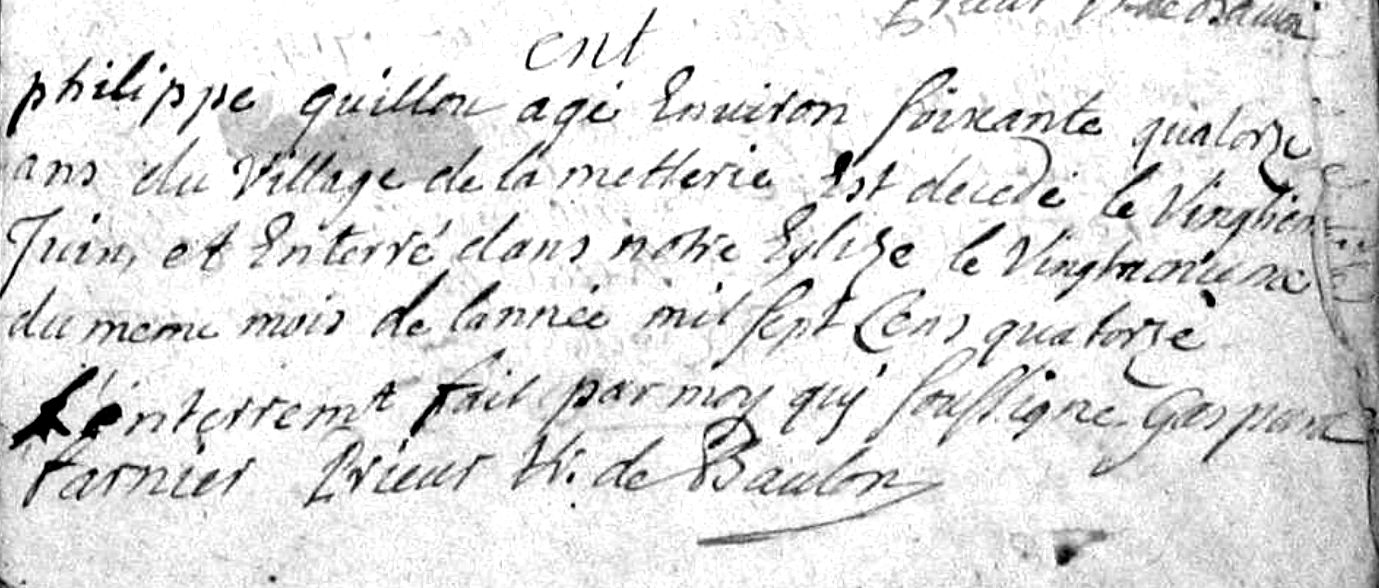 Prieur Vr. de Baulon
ent
philippe guillou agé Environ soixante quatorze
ans du Village de la metterie Est decedé le Vingtiem
Juin, et Enterré dans notre Eglize le Vingtunieme
du meme mois de lannéé mil sept Cens quatorze
L'enterremt fait par moy quj soussigne Gaspard
farnier Prieur Vr. de Baulon